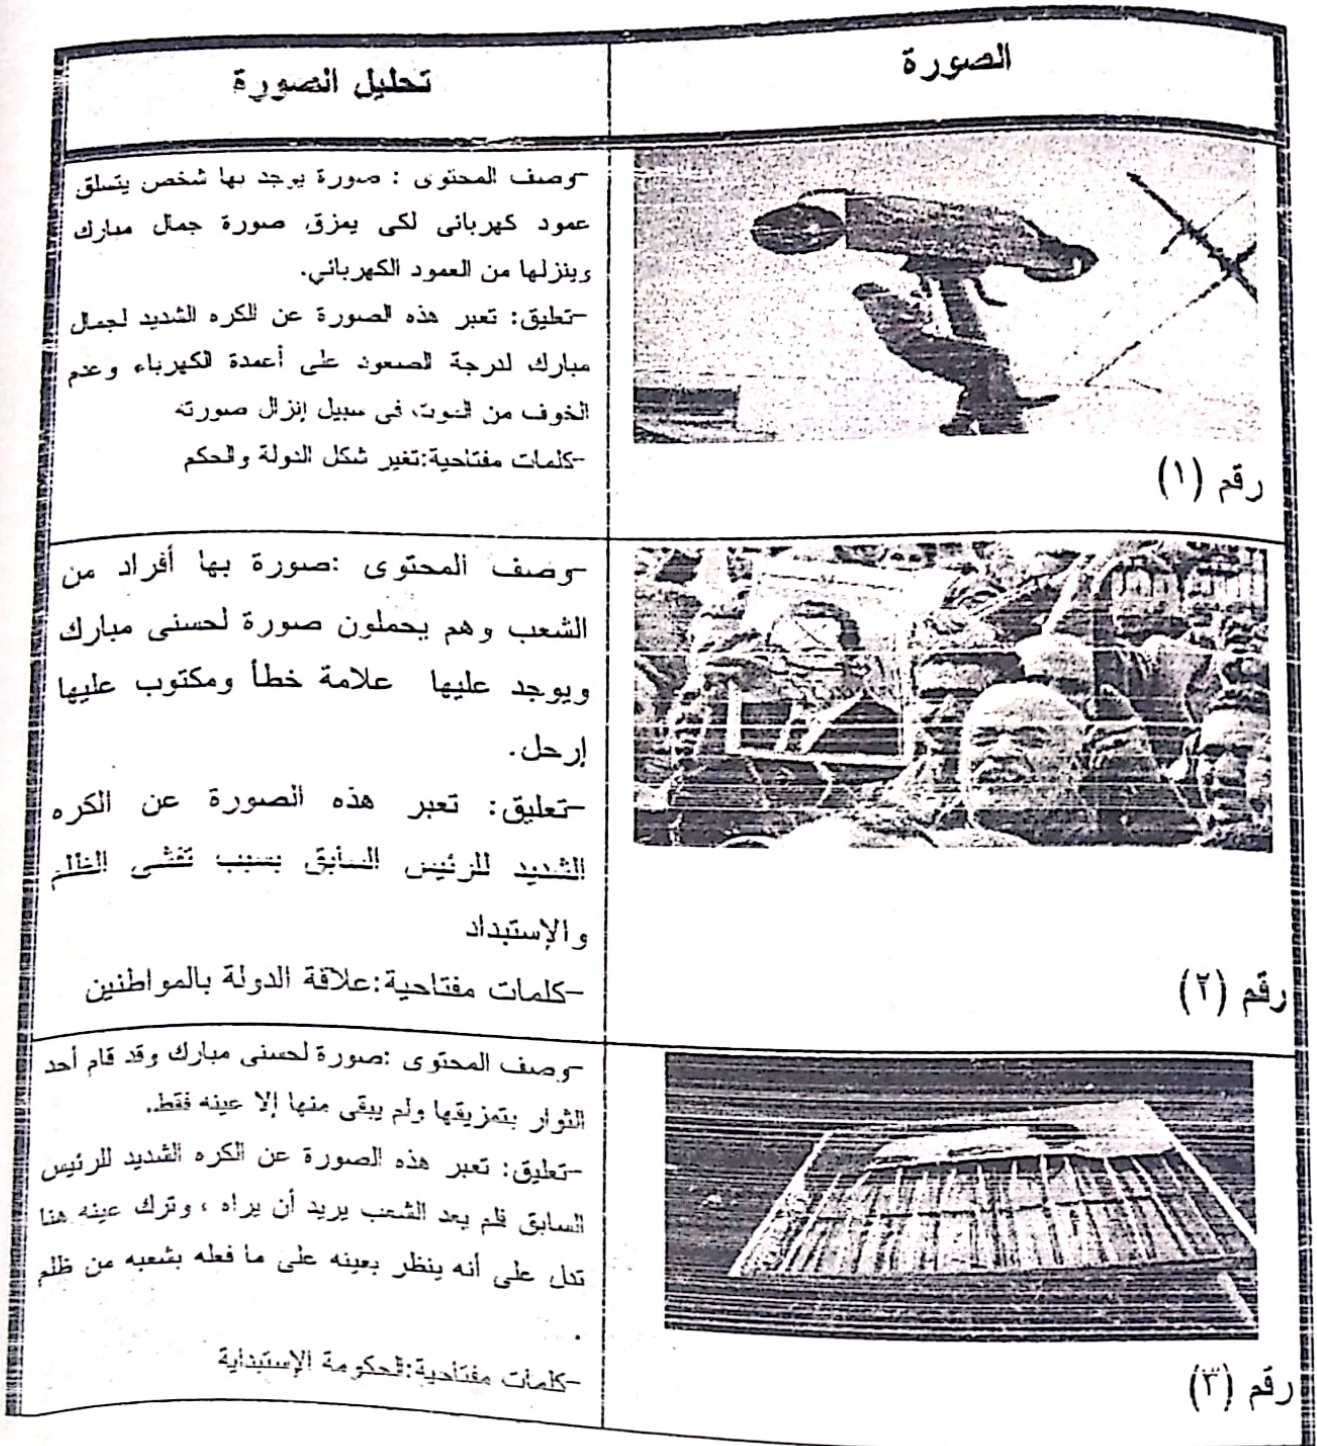 الصورة
تحليل الصورة
رقم (١)
-وصف المحتوى : صورة يوجد بها شخص يتسلق
عمود كهربائى لكى يمزق صورة جمال مبارك
وينزلها من العمود الكهربائي.
-تعليق: تعبر هذه الصورة عن الكره الشديد لجمال
مبارك لدرجة الصعود على أعمدة الكهرباء وعدم
الخوف من الموت، فى سبيل إنزال صورته
-كلمات مفتاحية:تغير شكل الدولة والحكم
رقم (٢)
-وصف المحتوى :صورة بها أفراد من
الشعب وهم يحملون صورة لحسنى مبارك
ويوجد عليها علامة خطأ ومكتوب عليها
إرحل.
-تعليق: تعبر هذه الصورة عن الكره
الشديد للرئيس السابق بسبب تفشى الظلم
والإستبداد
-كلمات مفتاحية:علاقة الدولة بالمواطنين
رقم (٣)
-وصف المحتوى :صورة لحسنى مبارك وقد قام أحد
الثوار بتمزيقها ولم يبقى منها إلا عينه فقط.
-تعليق: تعبر هذه الصورة عن الكره الشديد للرئيس
السابق فلم يعد الشعب يريد أن يراه ، وترك عينه هنا
تدل على أنه ينظر بعينه على ما فعله بشعبه من ظلم
.
-كلمات مفتاحية:الحكومة الإستبداية